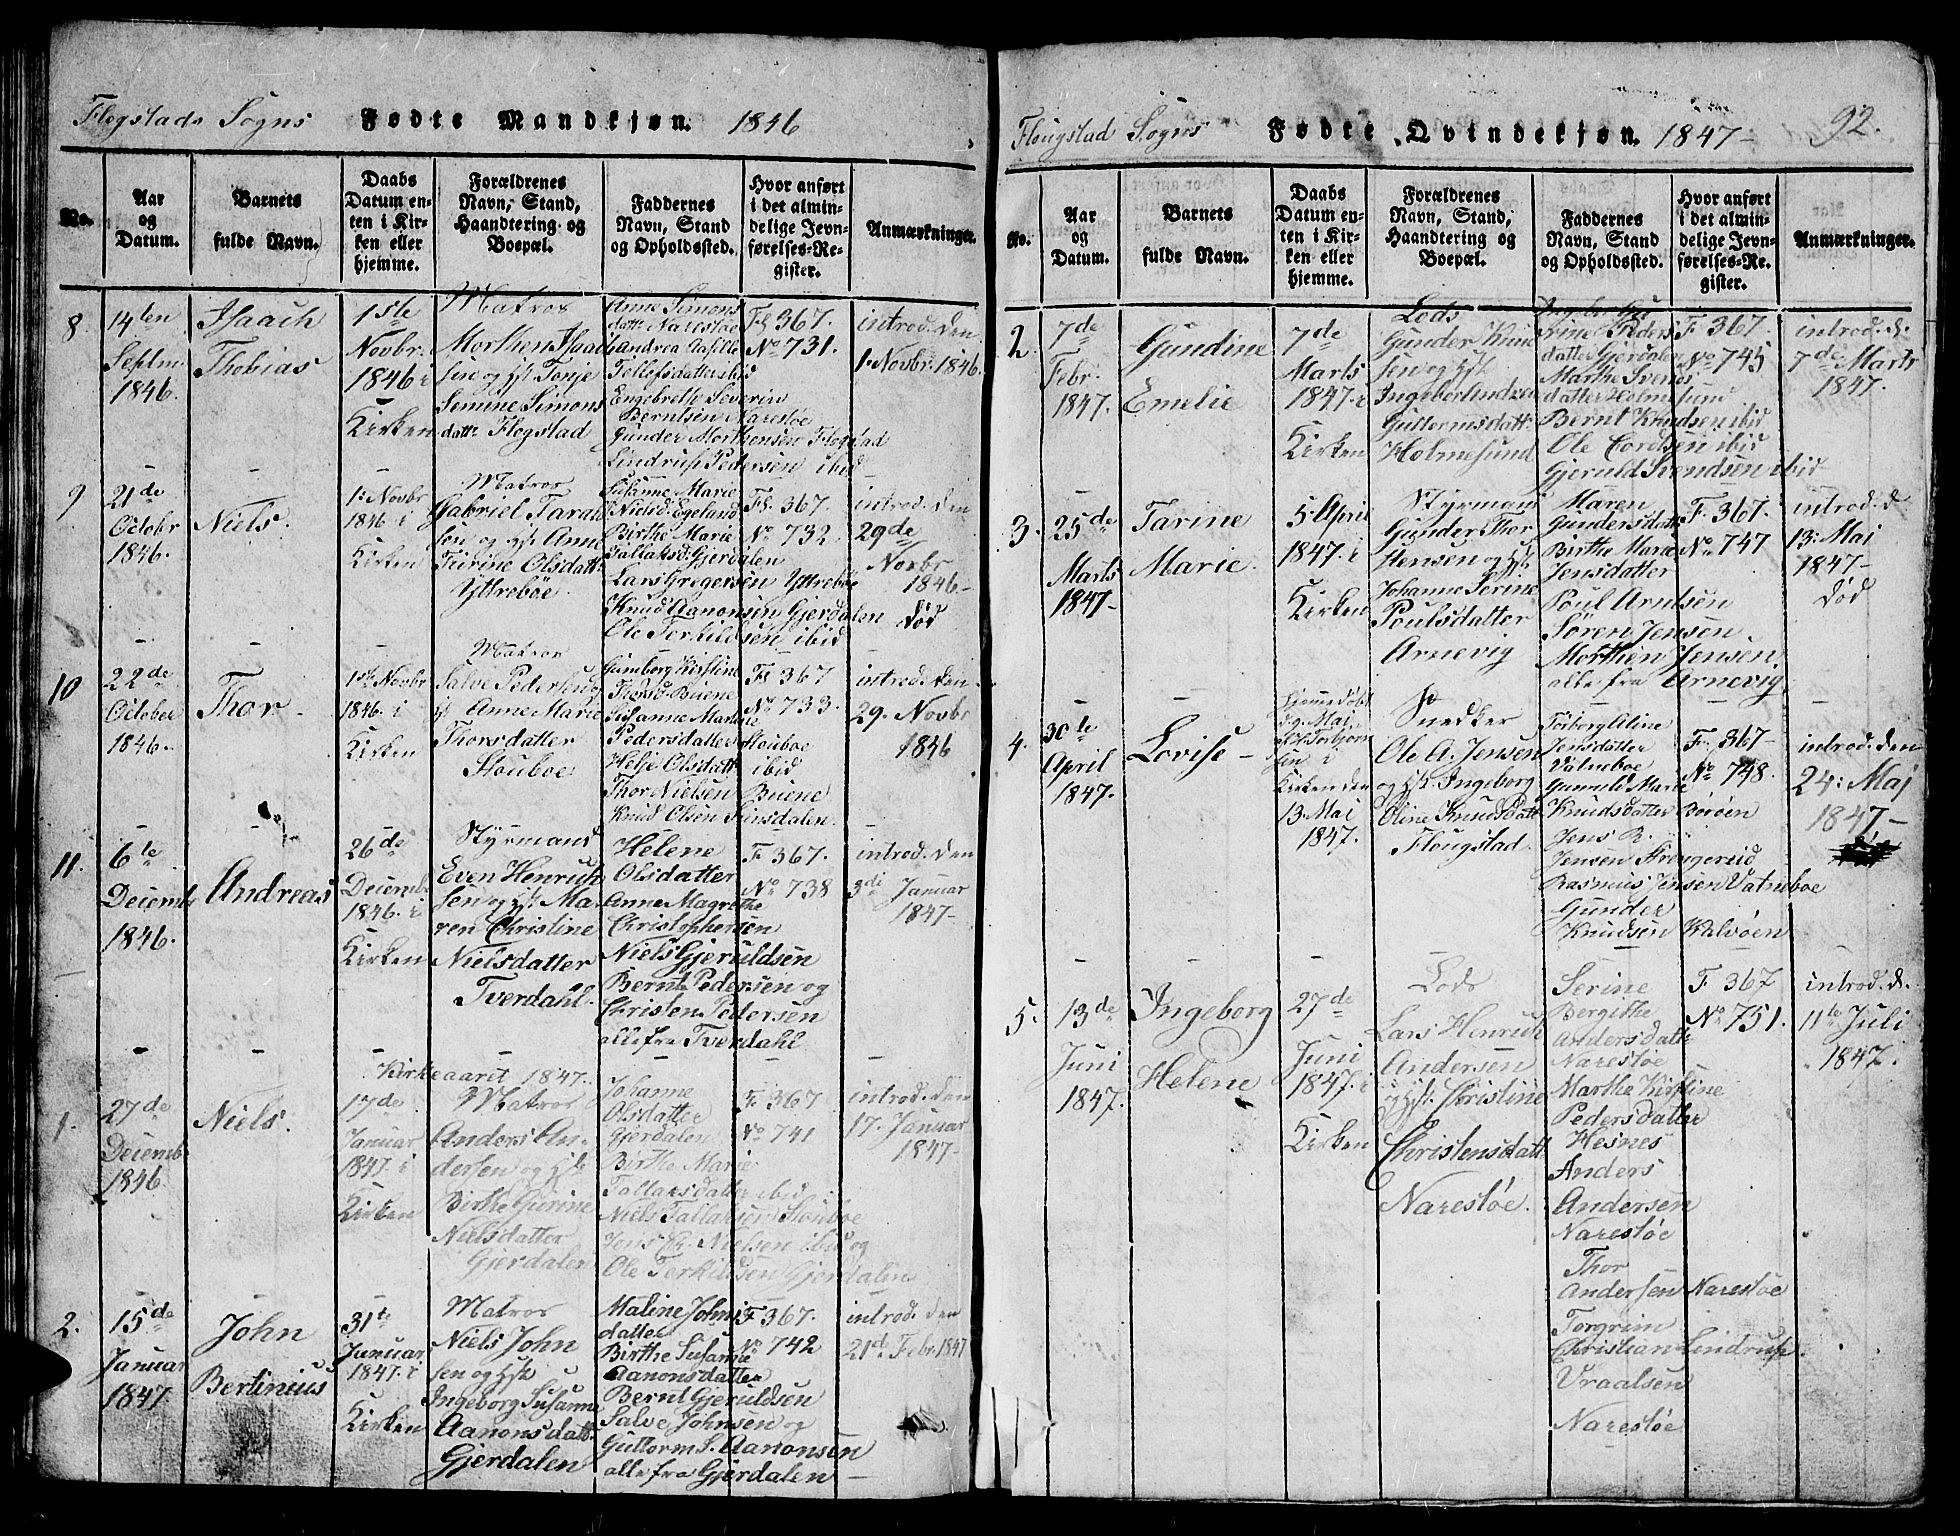 Flogstads Sogns Fødte Mandkjøn. 1846
No.
Aar og Datum.
Barnets fulde Navn.
Daabs Datum enten i Kirken eller hjemme.
Forældrenes Navn, Stand, Haandtering og Boepæl.
Faddernes Navn, Stand og Opholdssted.
Hvor anført i det almindelige Jevnførelses-Register.
Anmærkninger.
8.
14ten
Septm.
1846.
Isaach
Tobias
1ste
Novbr.
1846 i
Kirken
Matros
Morthen Isaach
sen og Hst Tonje
Semine Simons
datt: Flogstad
Anne Simons
datt: Narestøe
Andrea
Tollefsdatter ibid
Engebrethe Severin
Berntsen Narestøe
Gunder Morthensen Flogstad
Lindrup Pedersen ibid
Fl 367.
No 731.
introd. den
1. Novbr. 1846.
9
21de
Octobr
1846.
Niels.
1. Novbr
1846 i
Kirken
Matros
Gabriel Tarald
sen og Hst Anne
Turine Olsdatt:
Yttrebøe.
Susanne Marie
Nielsd. Egeland
Birthe Marie
Tallaksd: Gjerdalen
Lars Gregersen Yttrebøe
Knud Aanonsen Gjerdalen
Ole Torkildsen ibid
Fl. 367.
No 732
introd. den
29de
Novbr
1846-
død
10
22de
October
1846.
Thor.
1ste Novbr
1846. i
Kirken
Matros
Salve Pedersen og
Hst Anne Marie
Thorsdatter
Stouboe
Gunborg Kirstine
Thorsd. Buene
Susanne Marie
Pedersdatter Stouboe
Helje Olsdatt ibid
Thor Nielsen Buene
Knud Olsen Linsdalen.
Fl 367
No 733.
introd. den
29. Novbr
1846
11.
6te
Decemb
1846.
Andreas
26de
Decemb
1846. i
Kirken
Styrmand
Even Henrich
sen og Hst Ma-
ren Christine
Nielsdatter
Tverdahl.
Helene
Olsdatter
Anne Magrethe
Christophersen
Niels Gjeruldsen
Bernt Pedersen og
Christen Pedersen
alle fra Tverdahl
F. 367.
No 738
introd. den
3di Januar
1847-
Kirkeaaret 1847.
1.
27de
Decemb
1846.
Niels.
17de
Januar
1847. i
Kirken
Matros
Anders An-
dersen og Hst
Birthe Gurine
Nielsdatter
Gjerdalen
Johanne
Olsdatter
Gjerdalen
Birthe Marie
Tallaxsdatter ibid
Niels Tallaxsen Stouboe
Jens Chr. Nielsen ibid og
Ole Terkildsen Gjerdalen
F. 367
No 741
introd. den
17. Januar
1847-
2.
15de
Januar
1847.
John
Bertinius
31te
Januar
1847. i
Kirken
Matros
Niels John
sen og Hst
Ingeborg Susanne
Aanonsdatt:
Gjerdalen
Maline Johns
datter
Birthe Susanne
Aanonsdatter
Bernt Gjeruldsen
Salve Johnsen og
Guttorm S. Aanonsen
alle fra Gjerdalen
F 367.
No 742
introd. den
21d. Febr. 1847
Flougstad Sogns Fødte Qvindekjøn. 1847- 92.
No.
Aar og Datum.
Barnets fulde Navn.
Daabs Datum enten i Kirken eller hjemme.
Forældrenes Navn, Stand, Haandtering og Boepæl.
Faddernes Navn, Stand og Opholdssted.
Hvor anført i det almindelige Jevnførelses-Register.
Anmærkninger.
2.
7de
Febr.
1847.
Gundine
Emelie
7de
Marts
1847. i
Kirken
Lods
Gunder Knud
sen og Hst
Ingebor Andrea
Guttormsdatt:
Holmesund
Ingeborg
Trine Peders
datter Gjerdalen
Marthe Svends
datter Holmesund
Bernt Knudsen ibid
Ole Cordsen ibid
Gjeruld Svendsen ibid
F. 367.
No 745
introd. d.
7de Marts
1847.
3.
25de
Marts
1847-
Tarine
Marie.
5. April
1847. i
Kirken
Styrmand
Gunder Thor
stensen og Hst
Johanne Serine
Poulsdatter
Arnevig
Maren
Gundersdatt
Birthe Marie
Jensdatter
Poul Arntsen
Søren Jensen
Morthen Jensen,
alle fra Arnevig
F. 367.
No 747
introd. d.
13: Mai
1847-
død
4.
30te
April
1847.
Lovise-
Hjemmedøbt
d. 9. Mai
af H. Torbjørn
sen i
Kirken den
13. Mai
1847.
Snedker
Ole A. Jensen
og Hst Ingeborg
Oline Knudsdatt:
Flougstad.
Torborg Aline
Jensdatter
Vatneboe
Gunuld Marie
Knudsdatter Børøen
Jens R.
Jensen Strengereid
Rasmus Jensen Vatneboe
Gunder
Knudsen Kalvøen
F. 367-
No 748.
introd. den
24: Mai
1847-
5.
13de
Juni
1847.
Ingeborg
Helene
27de
Juni
1847. i
Kirken
Lods
Lars Henrich
Andersen
og Hst. Christine
Christensdatt:
Narestøe.
Serine
Bergithe
Andersdatt:
Narestøe
Marthe Kirstine
Pedersdatter
Hesnes
Anders
Andersen
Narestøe
Thor
Andersen Narestøe
Torgrim
Christian Lindrup
Vraalsen
Narestøe
F 367
No 751.
introd. d.
11te Juli
1847.